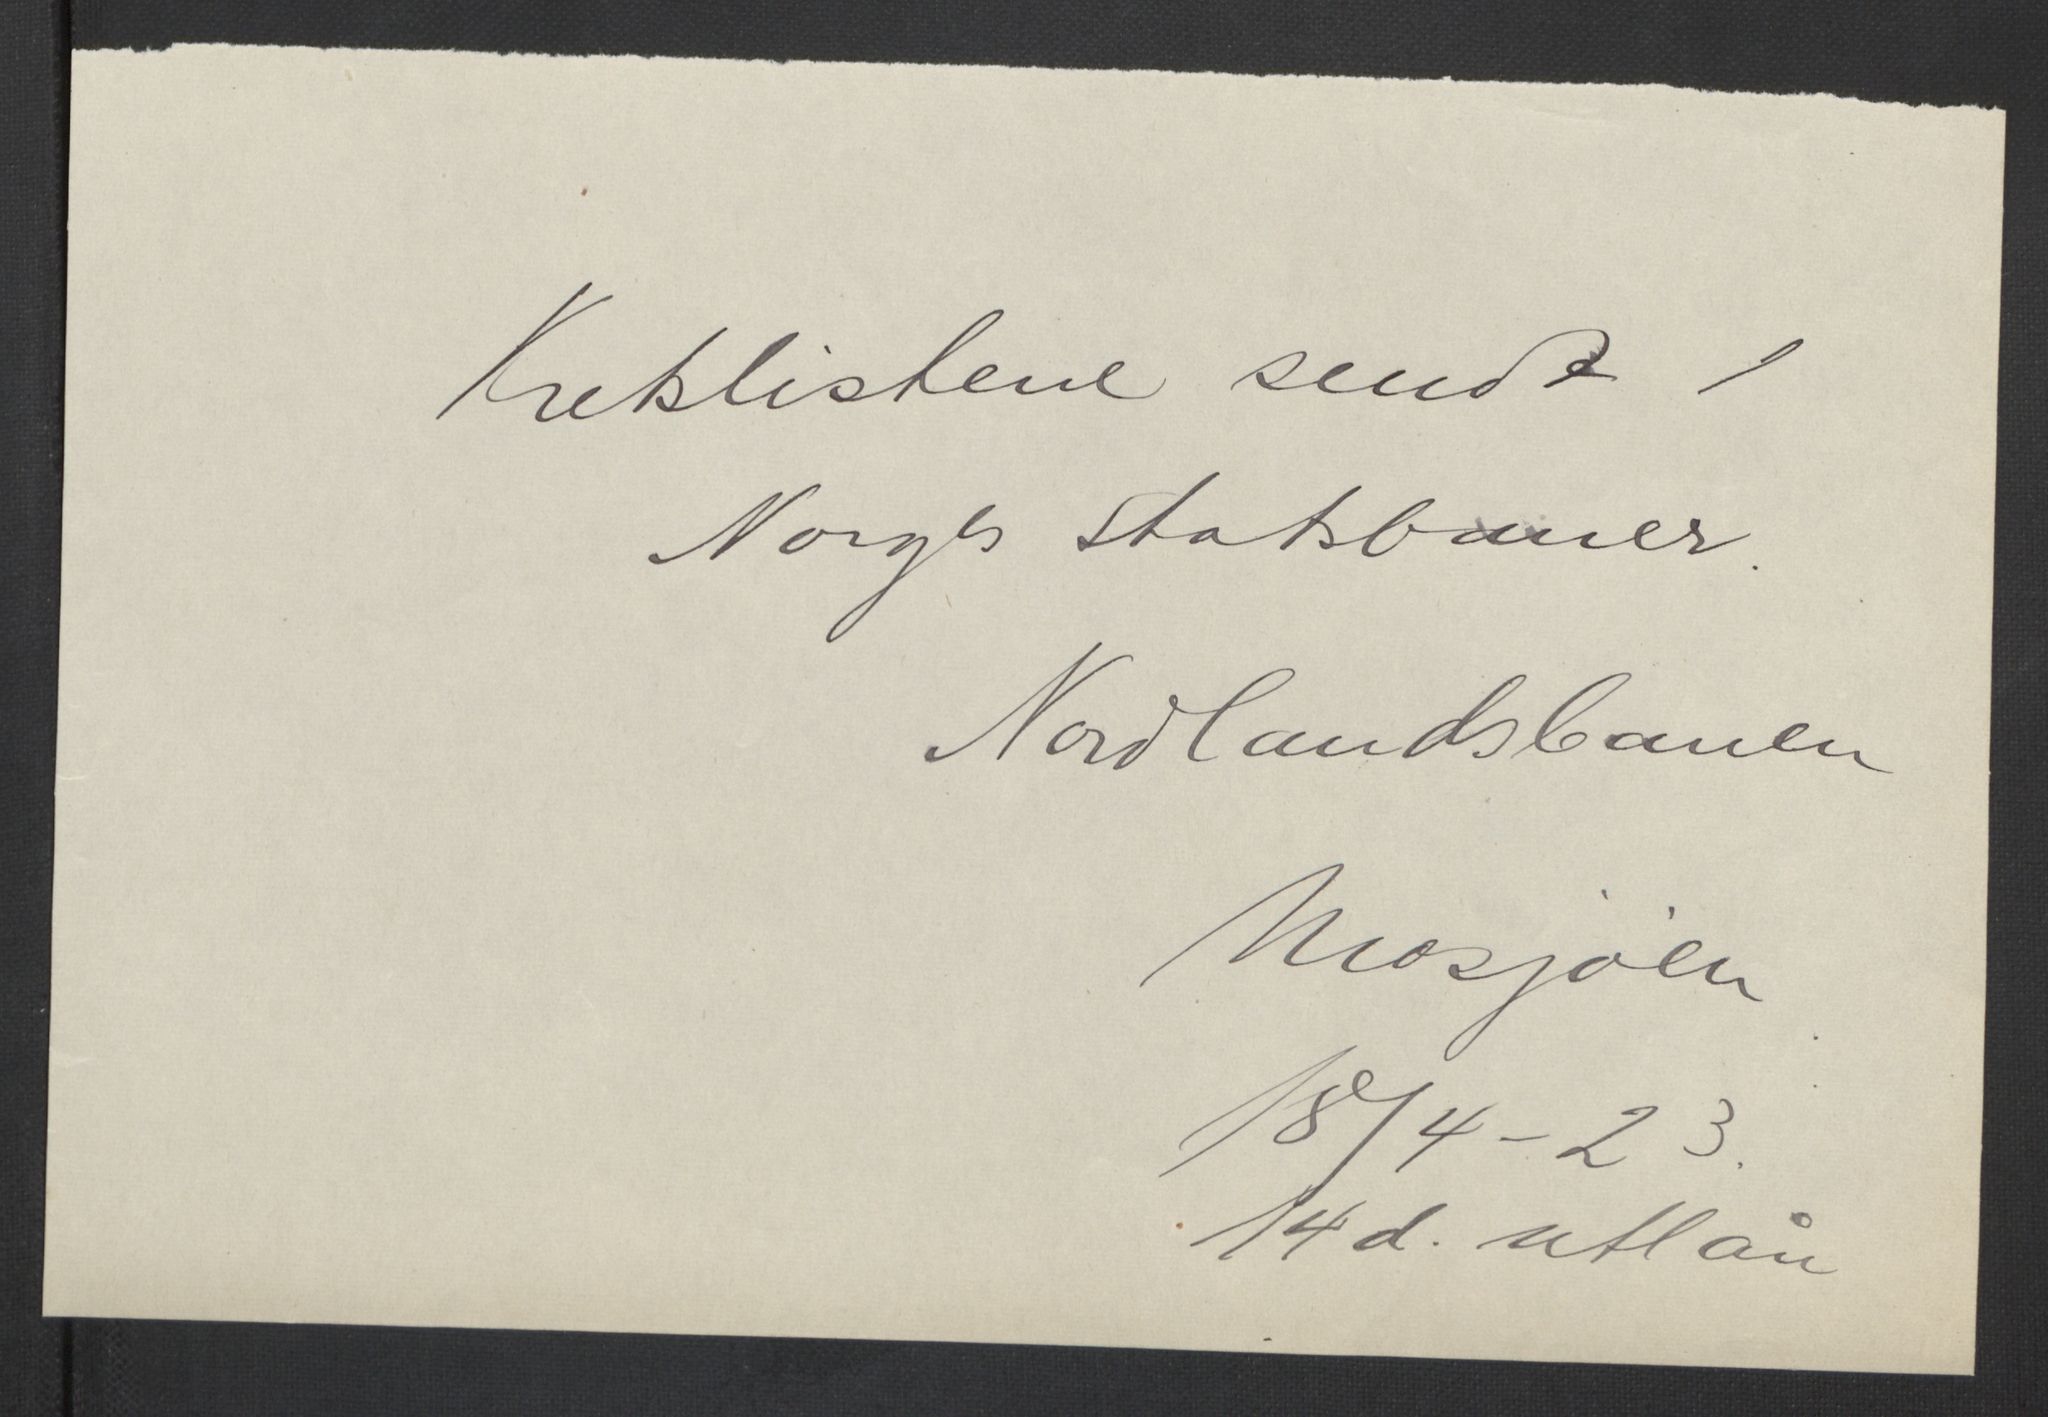 Kretslistene sendt 1
Norges statsbaner.
Nordlandsbanen
Mosjöen
18/4-23.
14 d. utlån